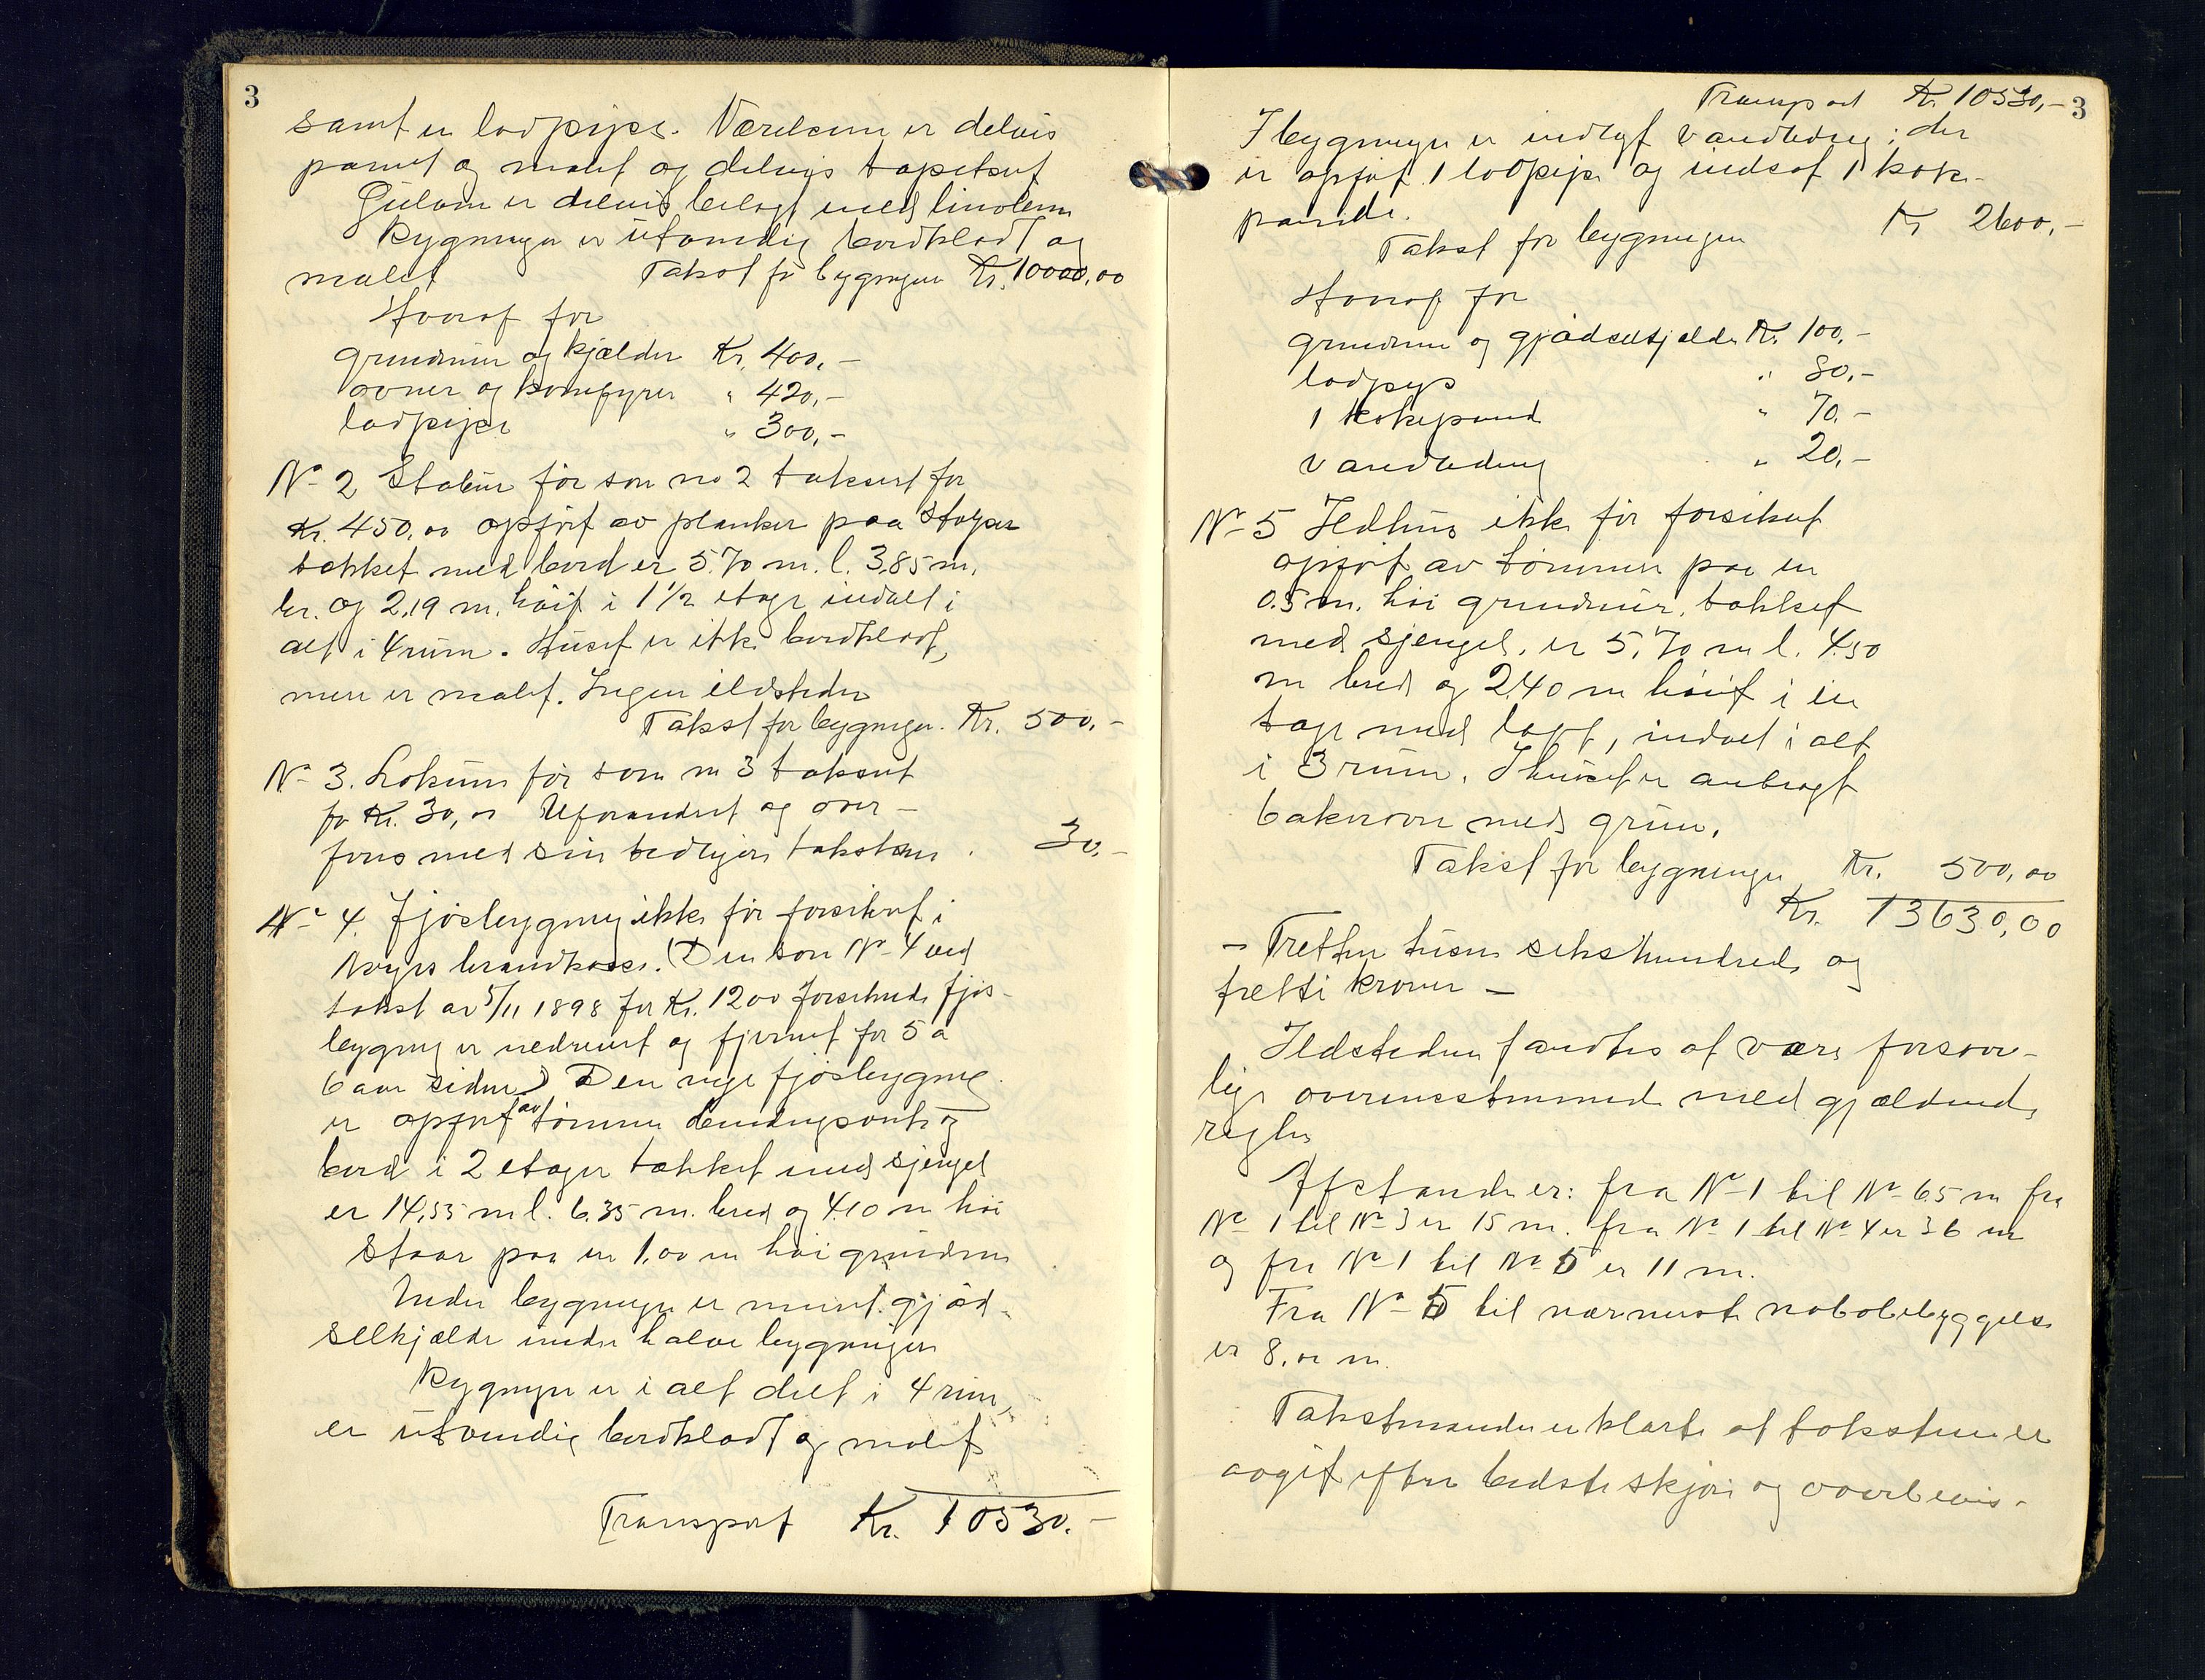 3
samt en lodpipe. Værelserne er delvis
panelt og malet og delvis tapetseret
Gulvene er delvis belagt med linoleum
Bygningen er utvendig bordklædt og
malet Takst for bygningen Kr. 10000,00
Hvorav for
grundmur og kjælder Kr. 400,-
ovner og komfyrer " 420,-
lodpipe " 300,-
No 2 Stabur før som no 2 taksert for
Kr. 450,00 opført av planker paa stolper
tækket med bord er 5.70 m. l. 3.85 m.
br. og 2,19 m. høit i 1 1/2 etage inddelt i
alt i 4 rum. Huset er ikke bordklædt,
men er malet. Ingen ildsteder
Takst for bygningen. Kr. 500,-
No 3. Lokum før som no 3 taksert
for Kr. 30,00 Uforandret og over-
føres med sin tidligere takstsum. 30,-
No 4. Fjøsbygning ikke før forsikret i
Norges brandkasse. (Den som No 4 ved
takst av 5/11 1898 for Kr. 1200 forsikrede fjøs-
bygning er nedrevet og fjernet for 5 a
6 aar siden) Den nye fjøsbygning
er opført av tømmer bindingsverk og
bord i 2 etager tækket med spengel
er 14,55 m l. 6.35 m. bred og 4.10 m høi
Staar paa en 1.00 m høi grundmur
Under bygningen er muret gjød-
selkjælder under halve bygningen
Bygningen er i alt delt i 4 rum,
er utvendig bordklædt og malet
Transport Kr. 10530.-
Transport Kr. 10530,- 3
I bygningen er indlagt vandledning; der
er opført 1 lodpipe og indsat 1 koke-
pande.
Takst for bygningen Kr 2600,-
Hvorav for
grundmur og gjødselkjælder Kr. 100,-
lodpipe " 80,-
1 kokepande " 70,-
vandledning " 20,-
No 5 Ildhus ikke før forsikret
opført av tømmer paa en
0.5 m. høi grundmur, tækket
med spengel, er 5,70 m l. 4.50
m bred og 2.40 m høit i en
etage med loft, inddelt i alt
i 3 rum. I huset er anbragt
bakerovn med grue.
Takst for bygningen Kr. 500,00
Kr. 13630,00
- Tretten tusen sekshundrede og
tretti kroner -
Ildstederne fandtes at være forsvar-
lige overensstemmende med gjældende
regler
Afstanden er: fra No 1 til No 6.5 m fra
No 1 til No 3 er 15 m. fra No 1 til No 4 er 36 m
og fra No 1 til No 5 er 11 m.
Fra No 5 til nærmeste nabobebyggelse
er 8.00 m.
Takstmændene erklærte at taksten er
avgit efter bedste skjøn og overbevis-